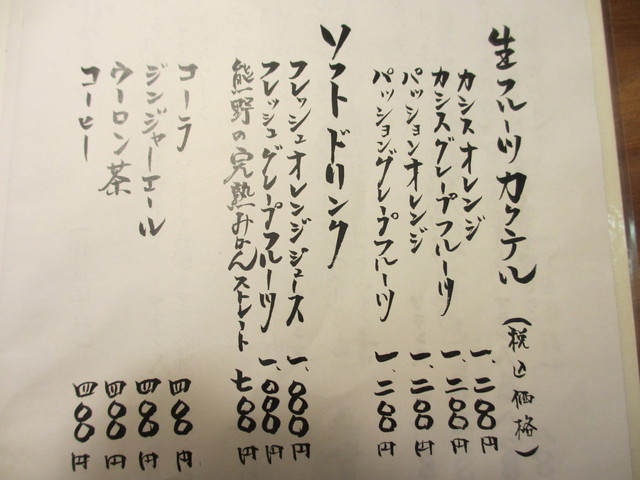 生フルーツカクテル(税込価格)
カシスオレンジ 一、二〇〇円
カシスグレープフルーツ 一、二〇〇円
パッションオレンジ 一、二〇〇円
パッショングレープフルーツ 一、二〇〇円
ソフトドリンク
フレッシュオレンジジュース 一、〇〇〇円
フレッシュグレープフルーツ 一、〇〇〇円
熊野の完熟みかんストレート 七〇〇円
コーラ 四〇〇円
ジンジャーエール 四〇〇円
ウーロン茶 四〇〇円
コーヒー 四〇〇円